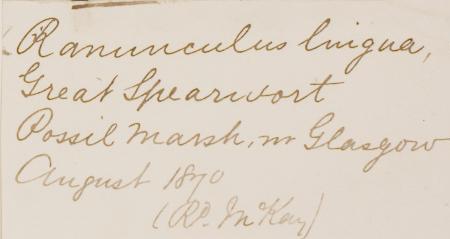 Ranunculus lingua,
Great Spearwort
Possil Marsh, nr Glasgow
August 1870
(Rd. McKay)